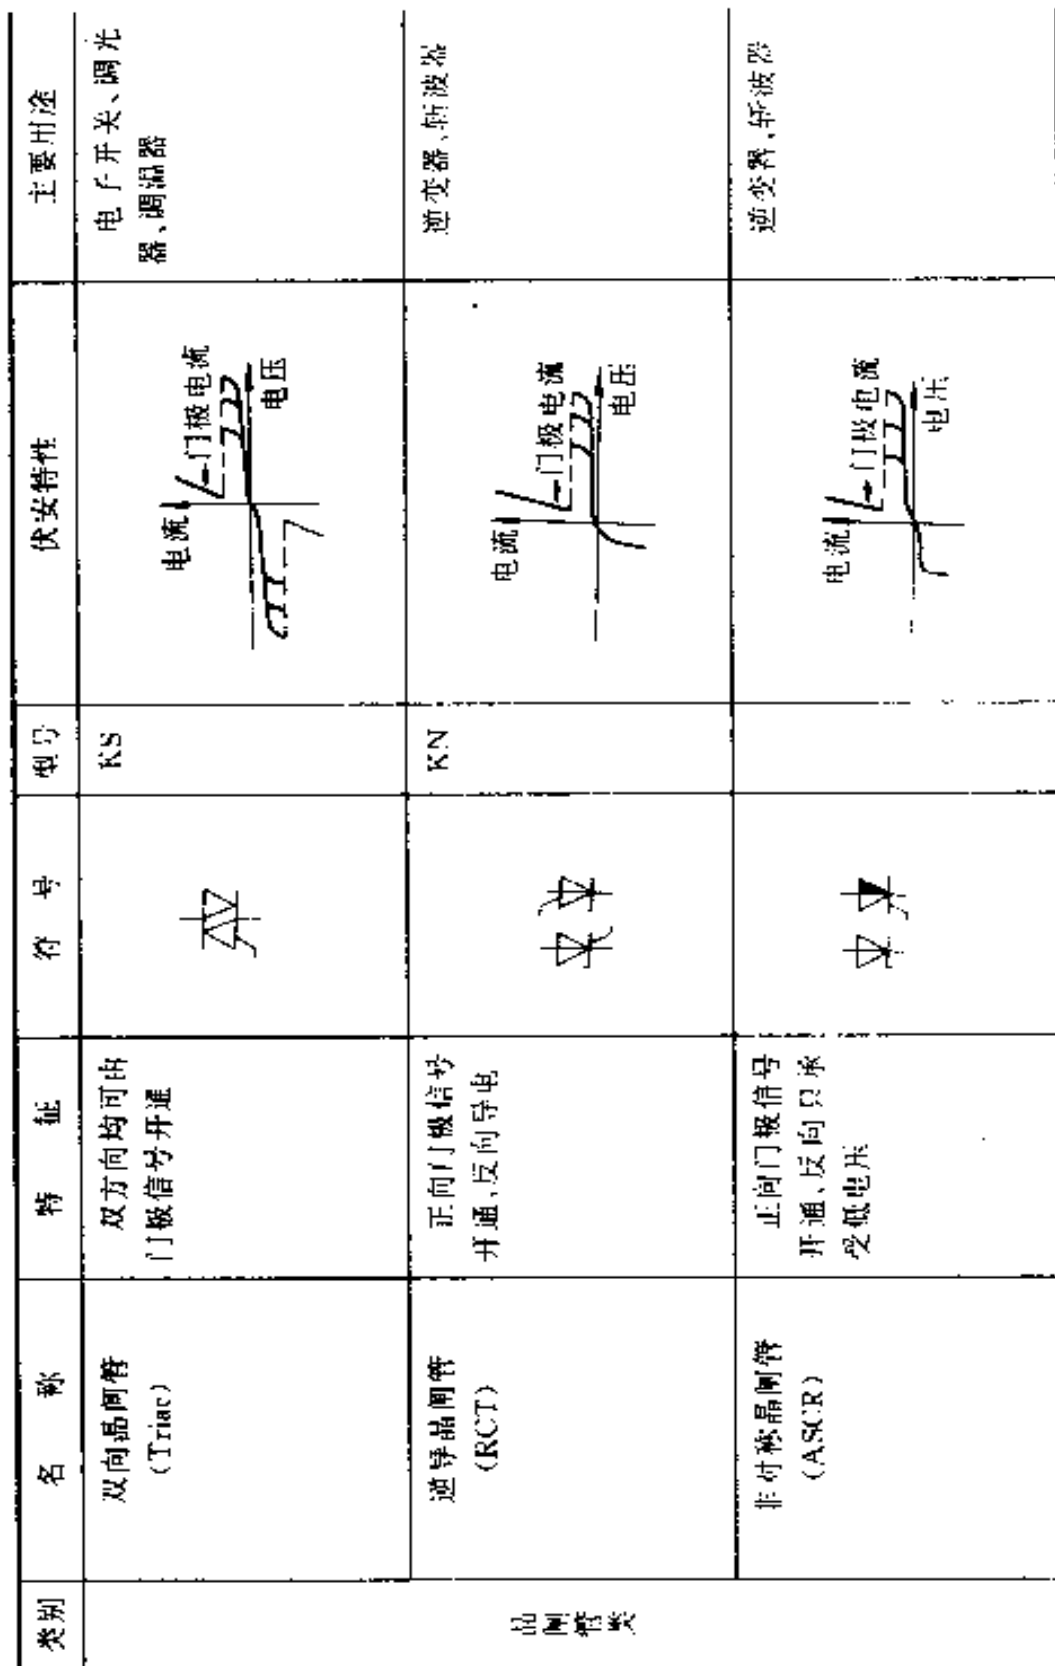 类别
名 称
特 征
符 号
型号
伏安特性
主要用途
晶闸管类
双向晶闸管
(Triac)
双方向均可由
门极信号开通
KS
电流
门极电流
电压
电子开关、调光
器、调温器
逆导晶闸管
(RCT)
正向门极信号
开通、反向导电
KN
电流
门极电流
电压
逆变器、斩波器
非对称晶闸管
(ASCR)
正向门极信号
开通、反向只承
受低电压
电流
门极电流
电压
逆变器、斩波器